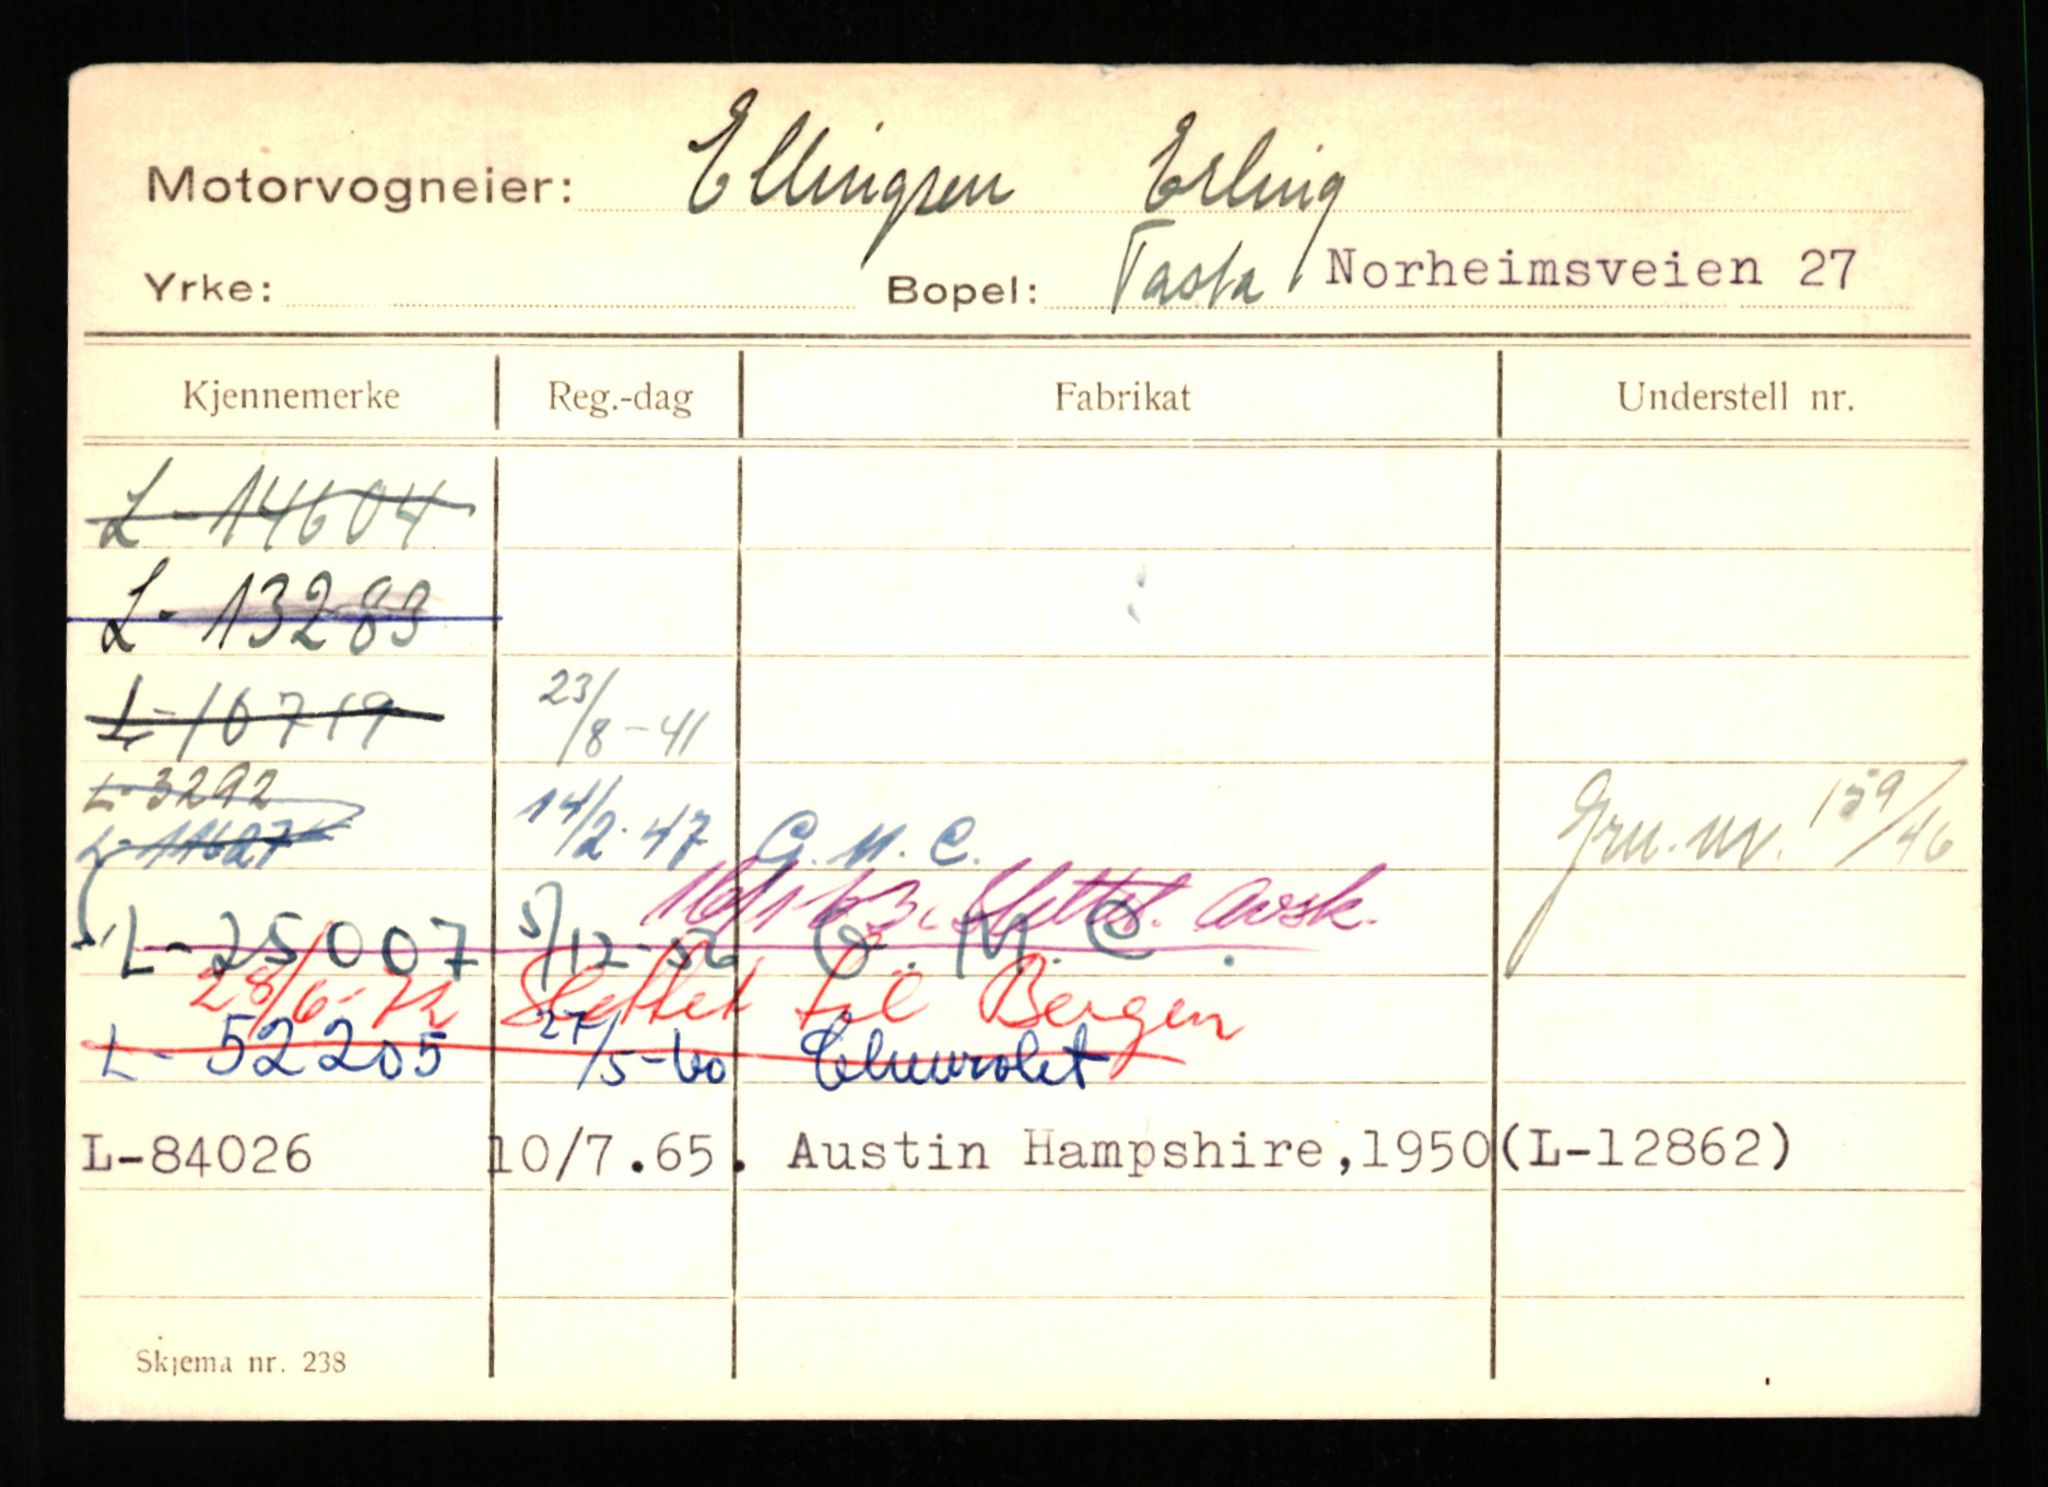 Motorvogneier: Ellingsen Erling
Yrke: Bopel: Tasta Norheimsveien 27
Kjennemerke Reg.-dag Fabrikat Understell nr.
L-14604
L-13283
L-10719 23/8-41
L-3292
L-11627 14/2-47 G.M.C. Gru.nr. 159/46
16/1-63. Slettet. avsk.
L-25007 5/12-56 G.M.C.
28/6-72 Slettet til Bergen
L-52205 27/5-60 Chevrolet
L-84026 10/7.65. Austin Hampshire,1950(L-12862)
Skjema nr. 238